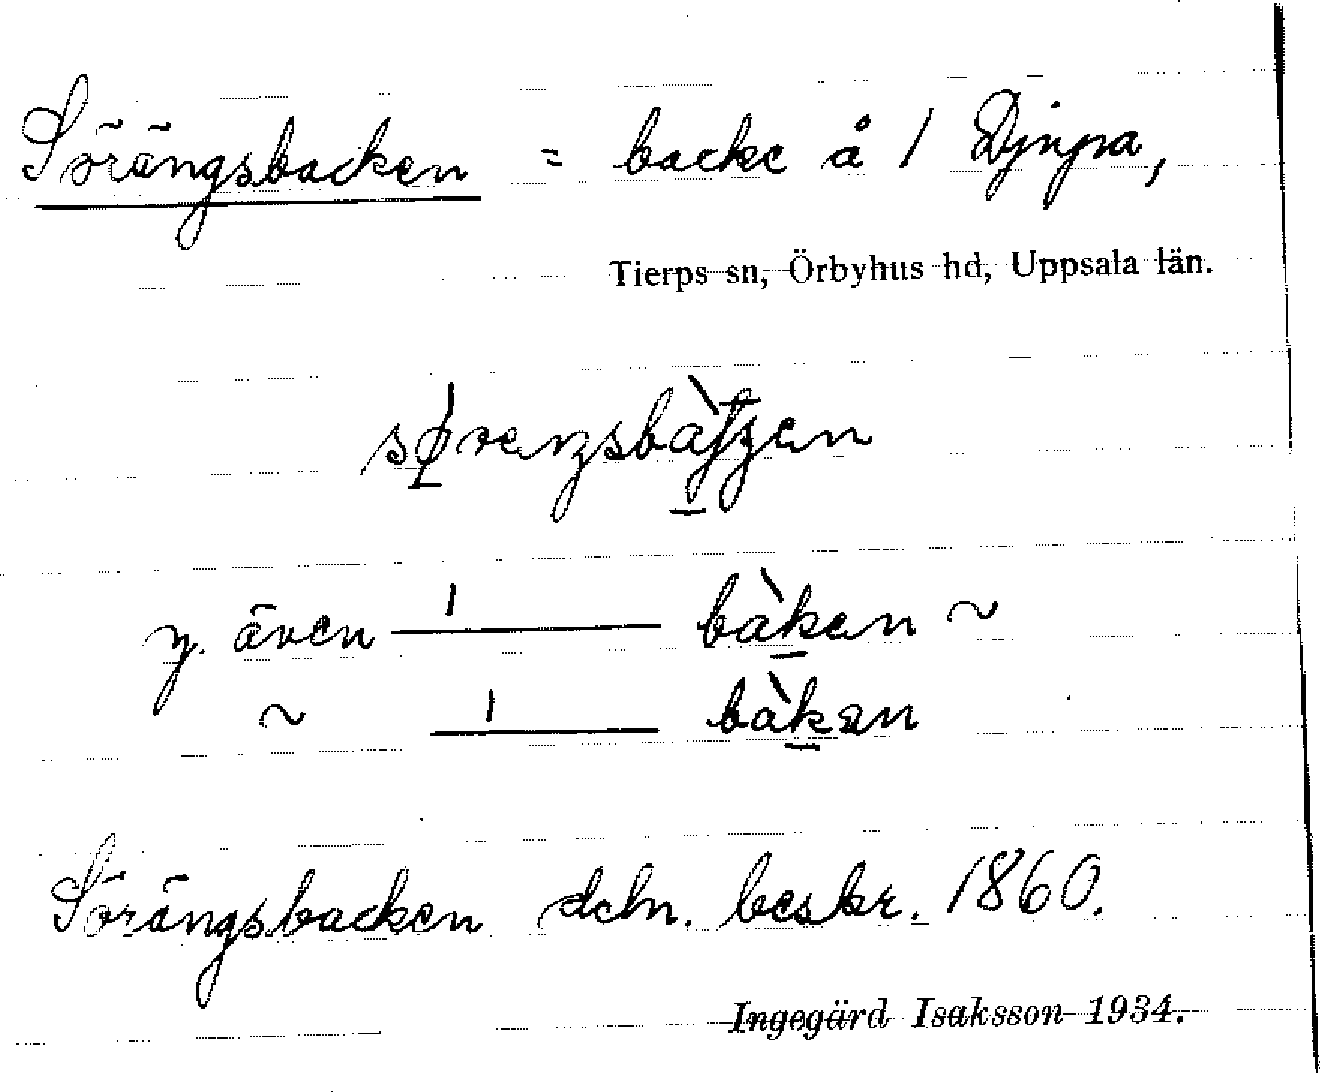 Sörängsbacken = backe å 1 Djupa,
Tierps sn, Örbyhus hd, Uppsala län.
y. även ——— bàken ~
~ ——— bàkan
Sörängsbacken dcln. beskr. 1860.
Ingegärd Isaksson 1934.